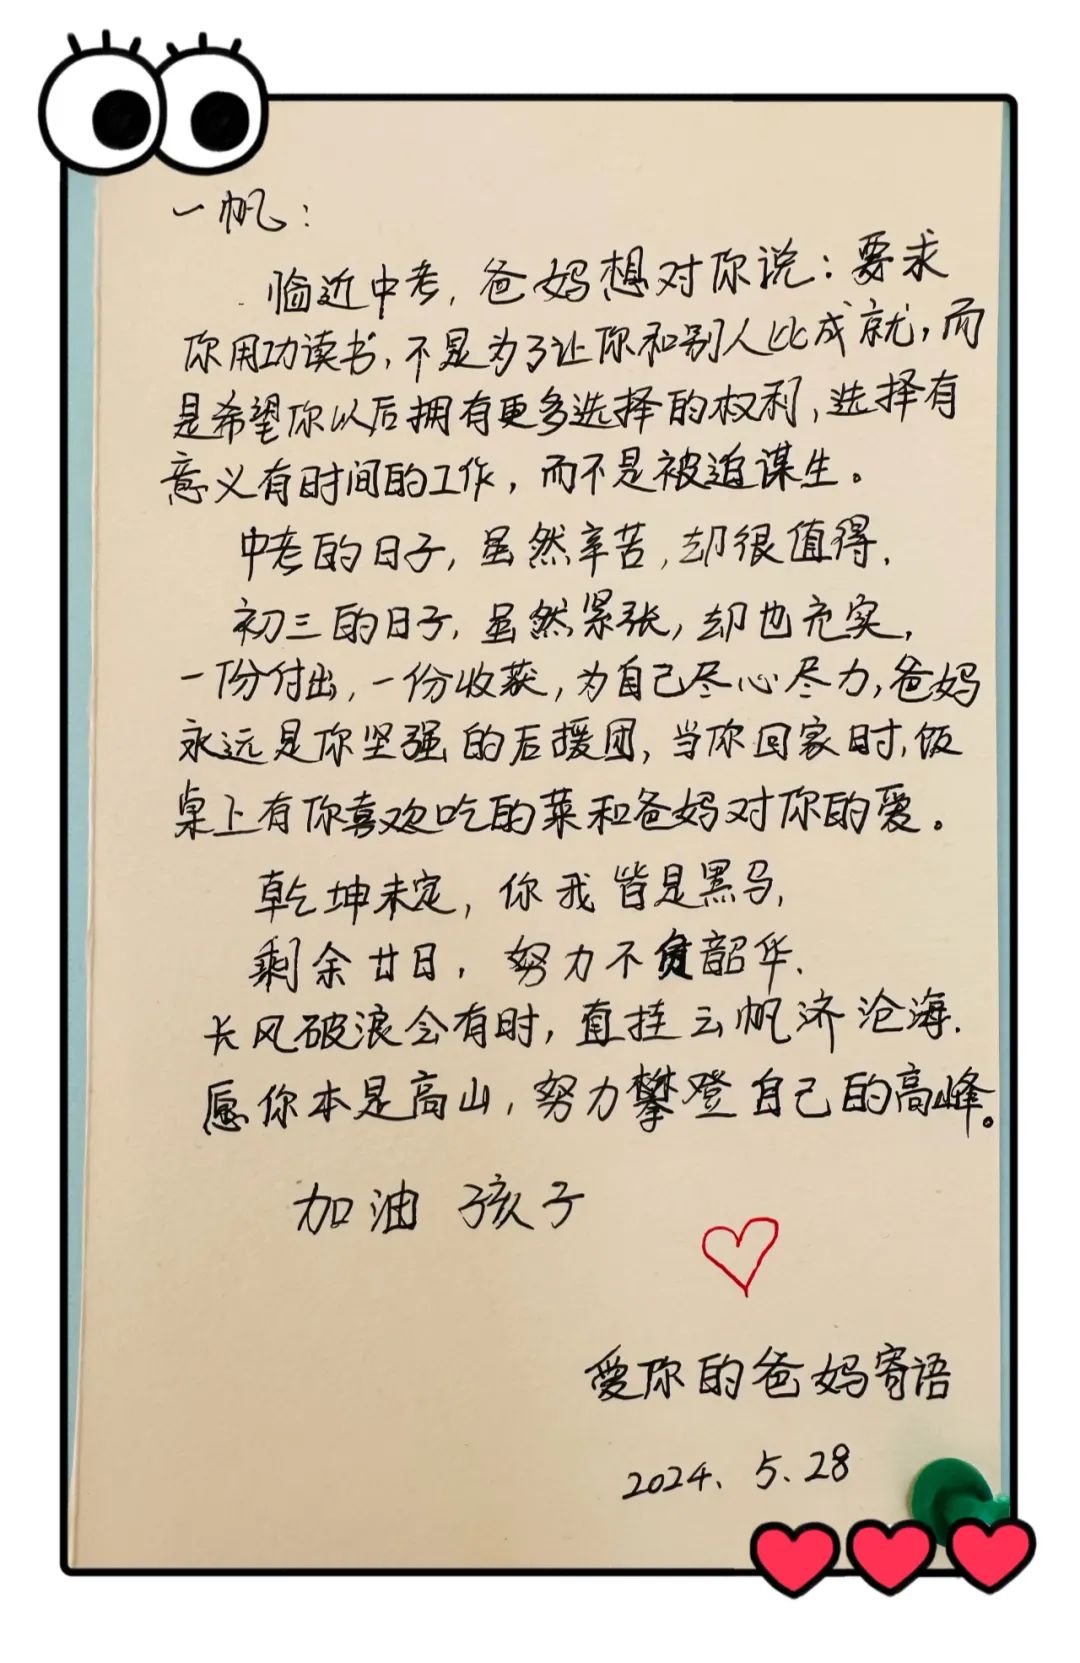 一帆：
临近中考，爸妈想对你说：要求
你用功读书，不是为了让你和别人比成就，而
是希望你以后拥有更多选择的权利，选择有
意义有时间的工作，而不是被迫谋生。
中考的日子，虽然辛苦，却很值得，
初三的日子，虽然紧张，却也充实，
一份付出，一份收获，为自己尽心尽力，爸妈
永远是你坚强的后援团，当你回家时，饭
桌上有你喜欢吃的菜和爸妈对你的爱。
乾坤未定，你我皆是黑马，
剩余廿日，努力不负韶华.
长风破浪会有时，直挂云帆济沧海.
愿你本是高山，努力攀登自己的高峰。
加油 孩子
爱你的爸妈寄语
2024.5.28